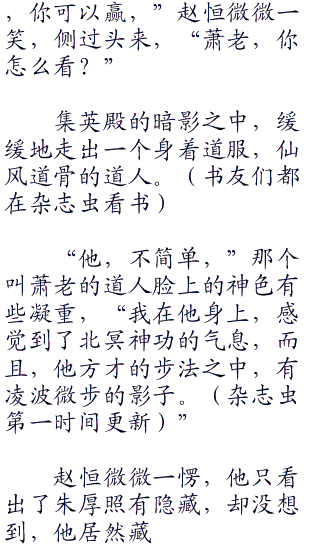 ，你可以赢，”赵恒微微一
笑，侧过头来，“萧老，你
怎么看？”
集英殿的暗影之中，缓
缓地走出一个身着道服，仙
风道骨的道人。（书友们都
在杂志虫看书）
“他，不简单，”那个
叫萧老的道人脸上的神色有
些凝重，“我在他身上，感
觉到了北冥神功的气息，而
且，他方才的步法之中，有
凌波微步的影子。（杂志虫
第一时间更新）”
赵恒微微一愣，他只看
出了朱厚照有隐藏，却没想
到，他居然藏